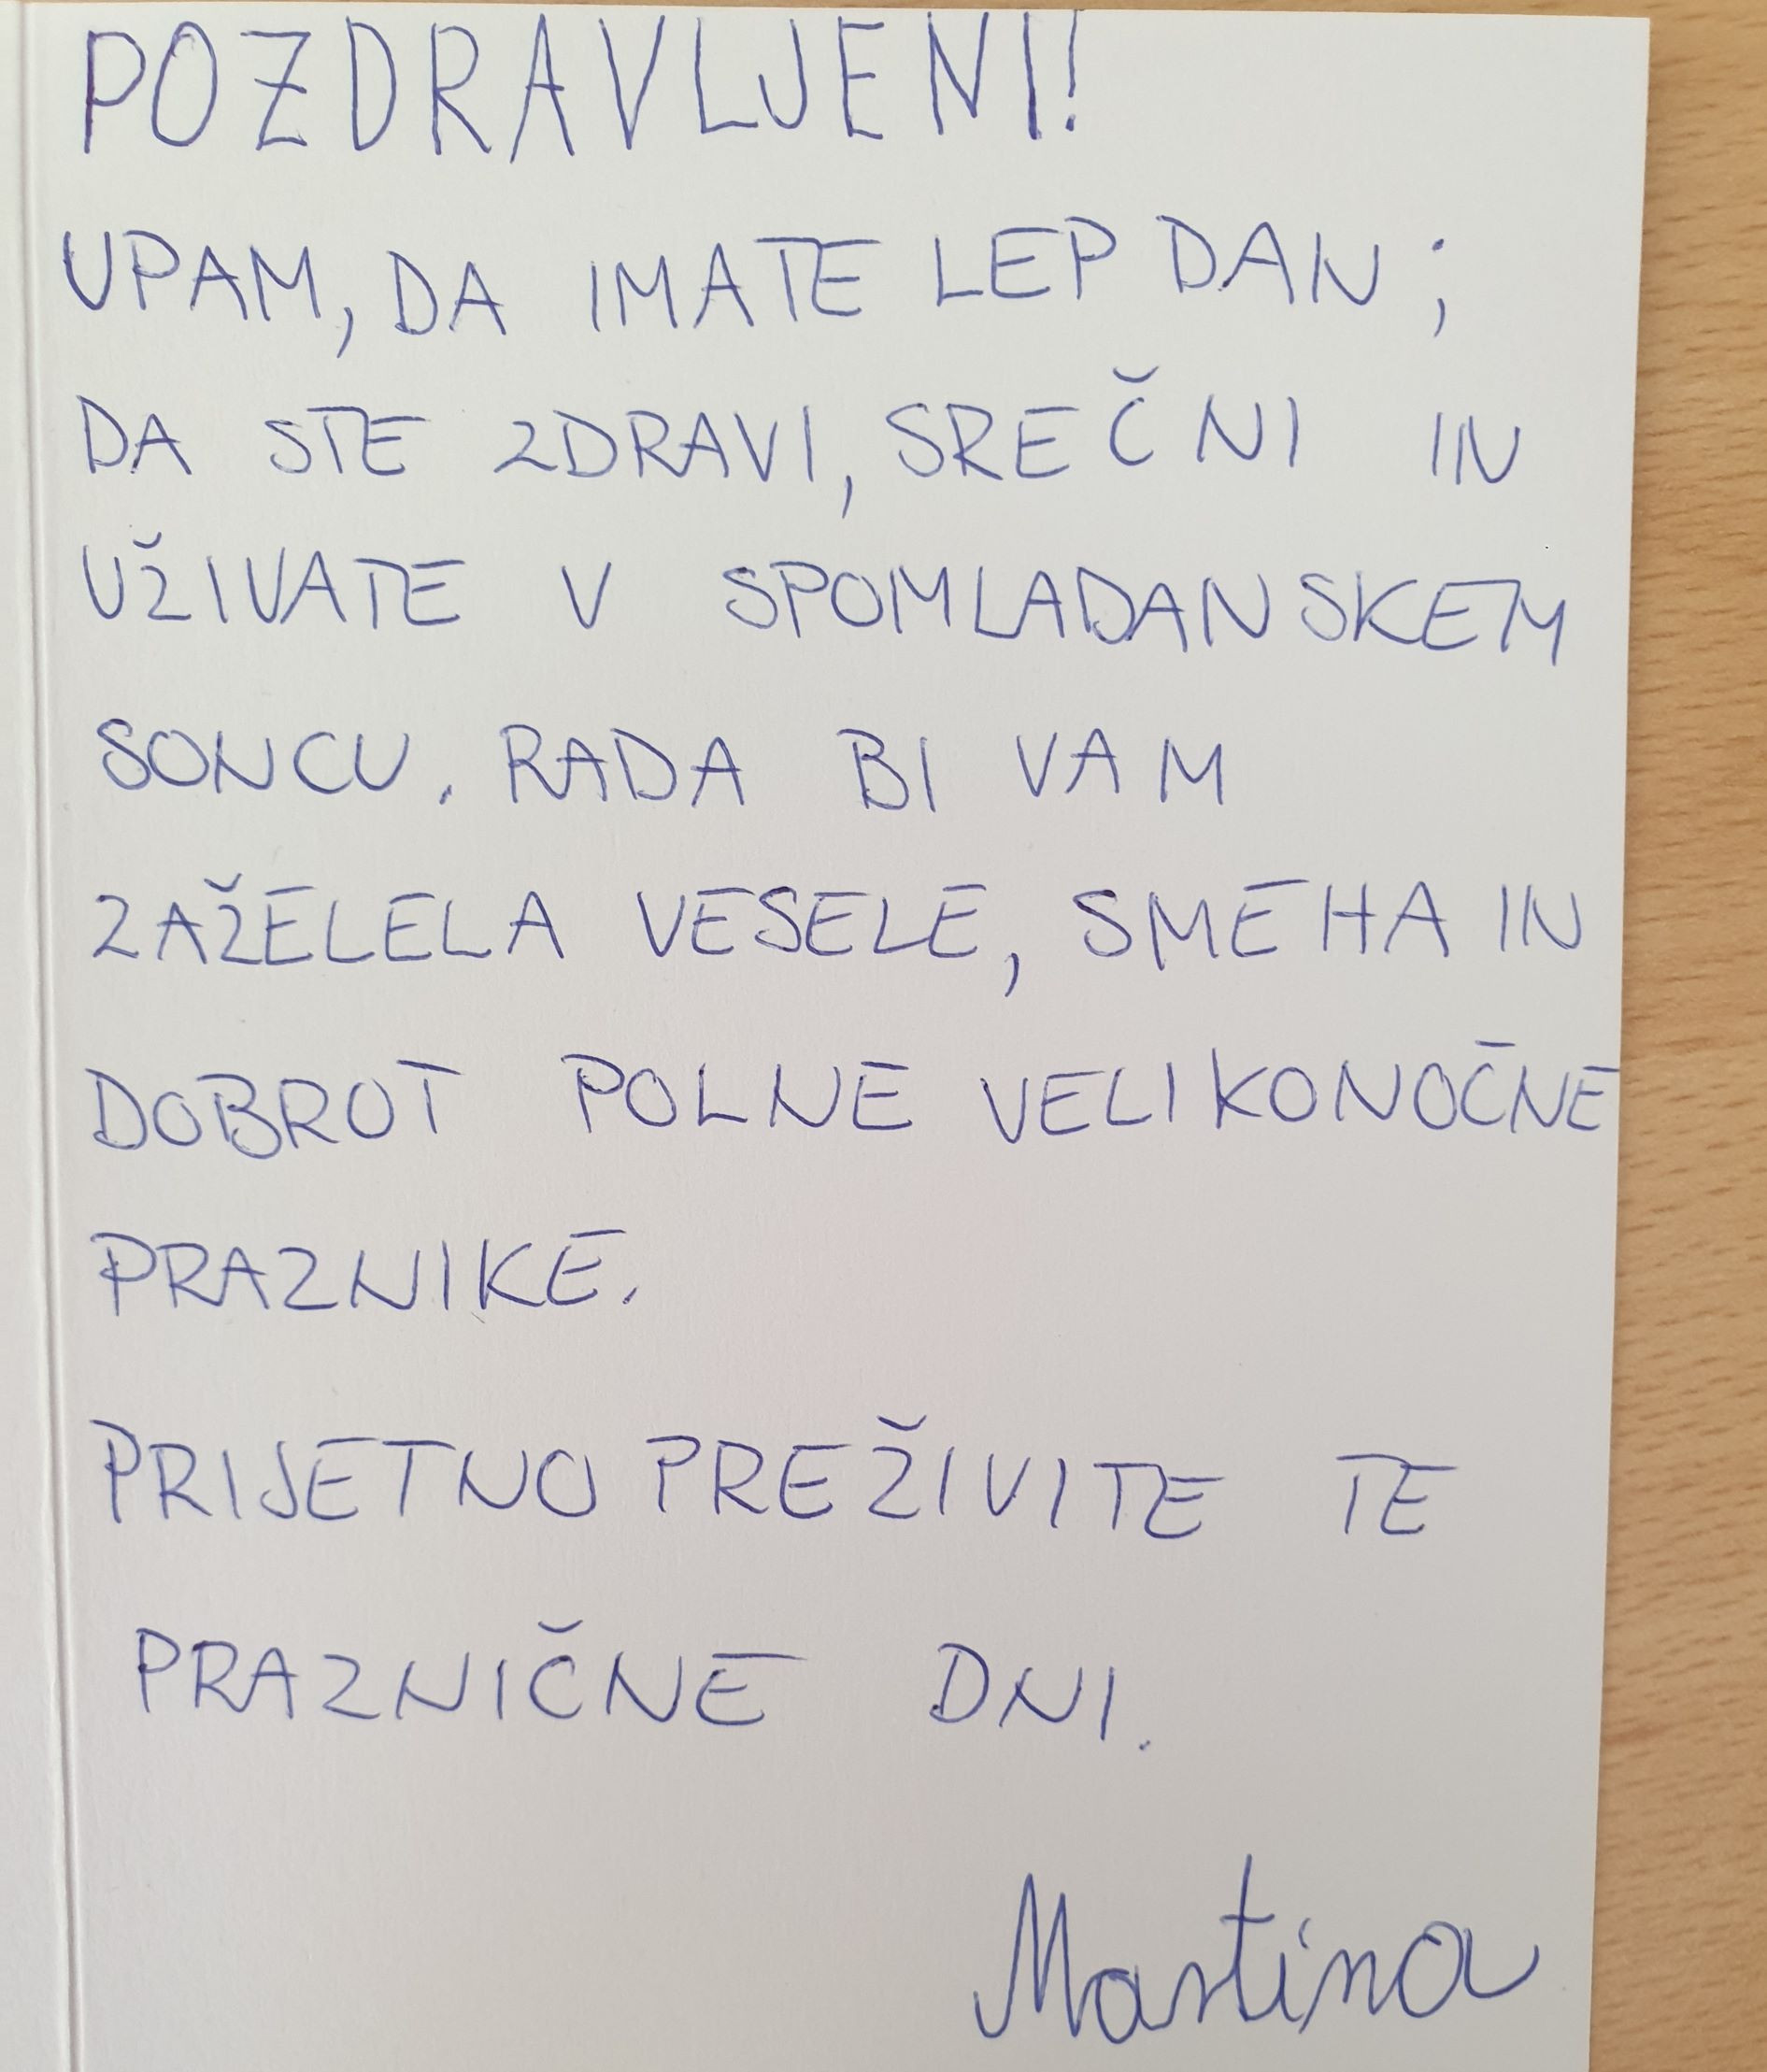 POZDRAVLJENI!
UPAM, DA IMATE LEP DAN;
DA STE ZDRAVI, SREČNI IN
UŽIVATE V SPOMLADANSKEM
SONCU. RADA BI VAM
ZAŽELELA VESELE, SMEHA IN
DOBROT POLNE VELIKONOČNE
PRAZNIKE.
PRIJETNO PREŽIVITE TE
PRAZNIČNE DNI.
Martina